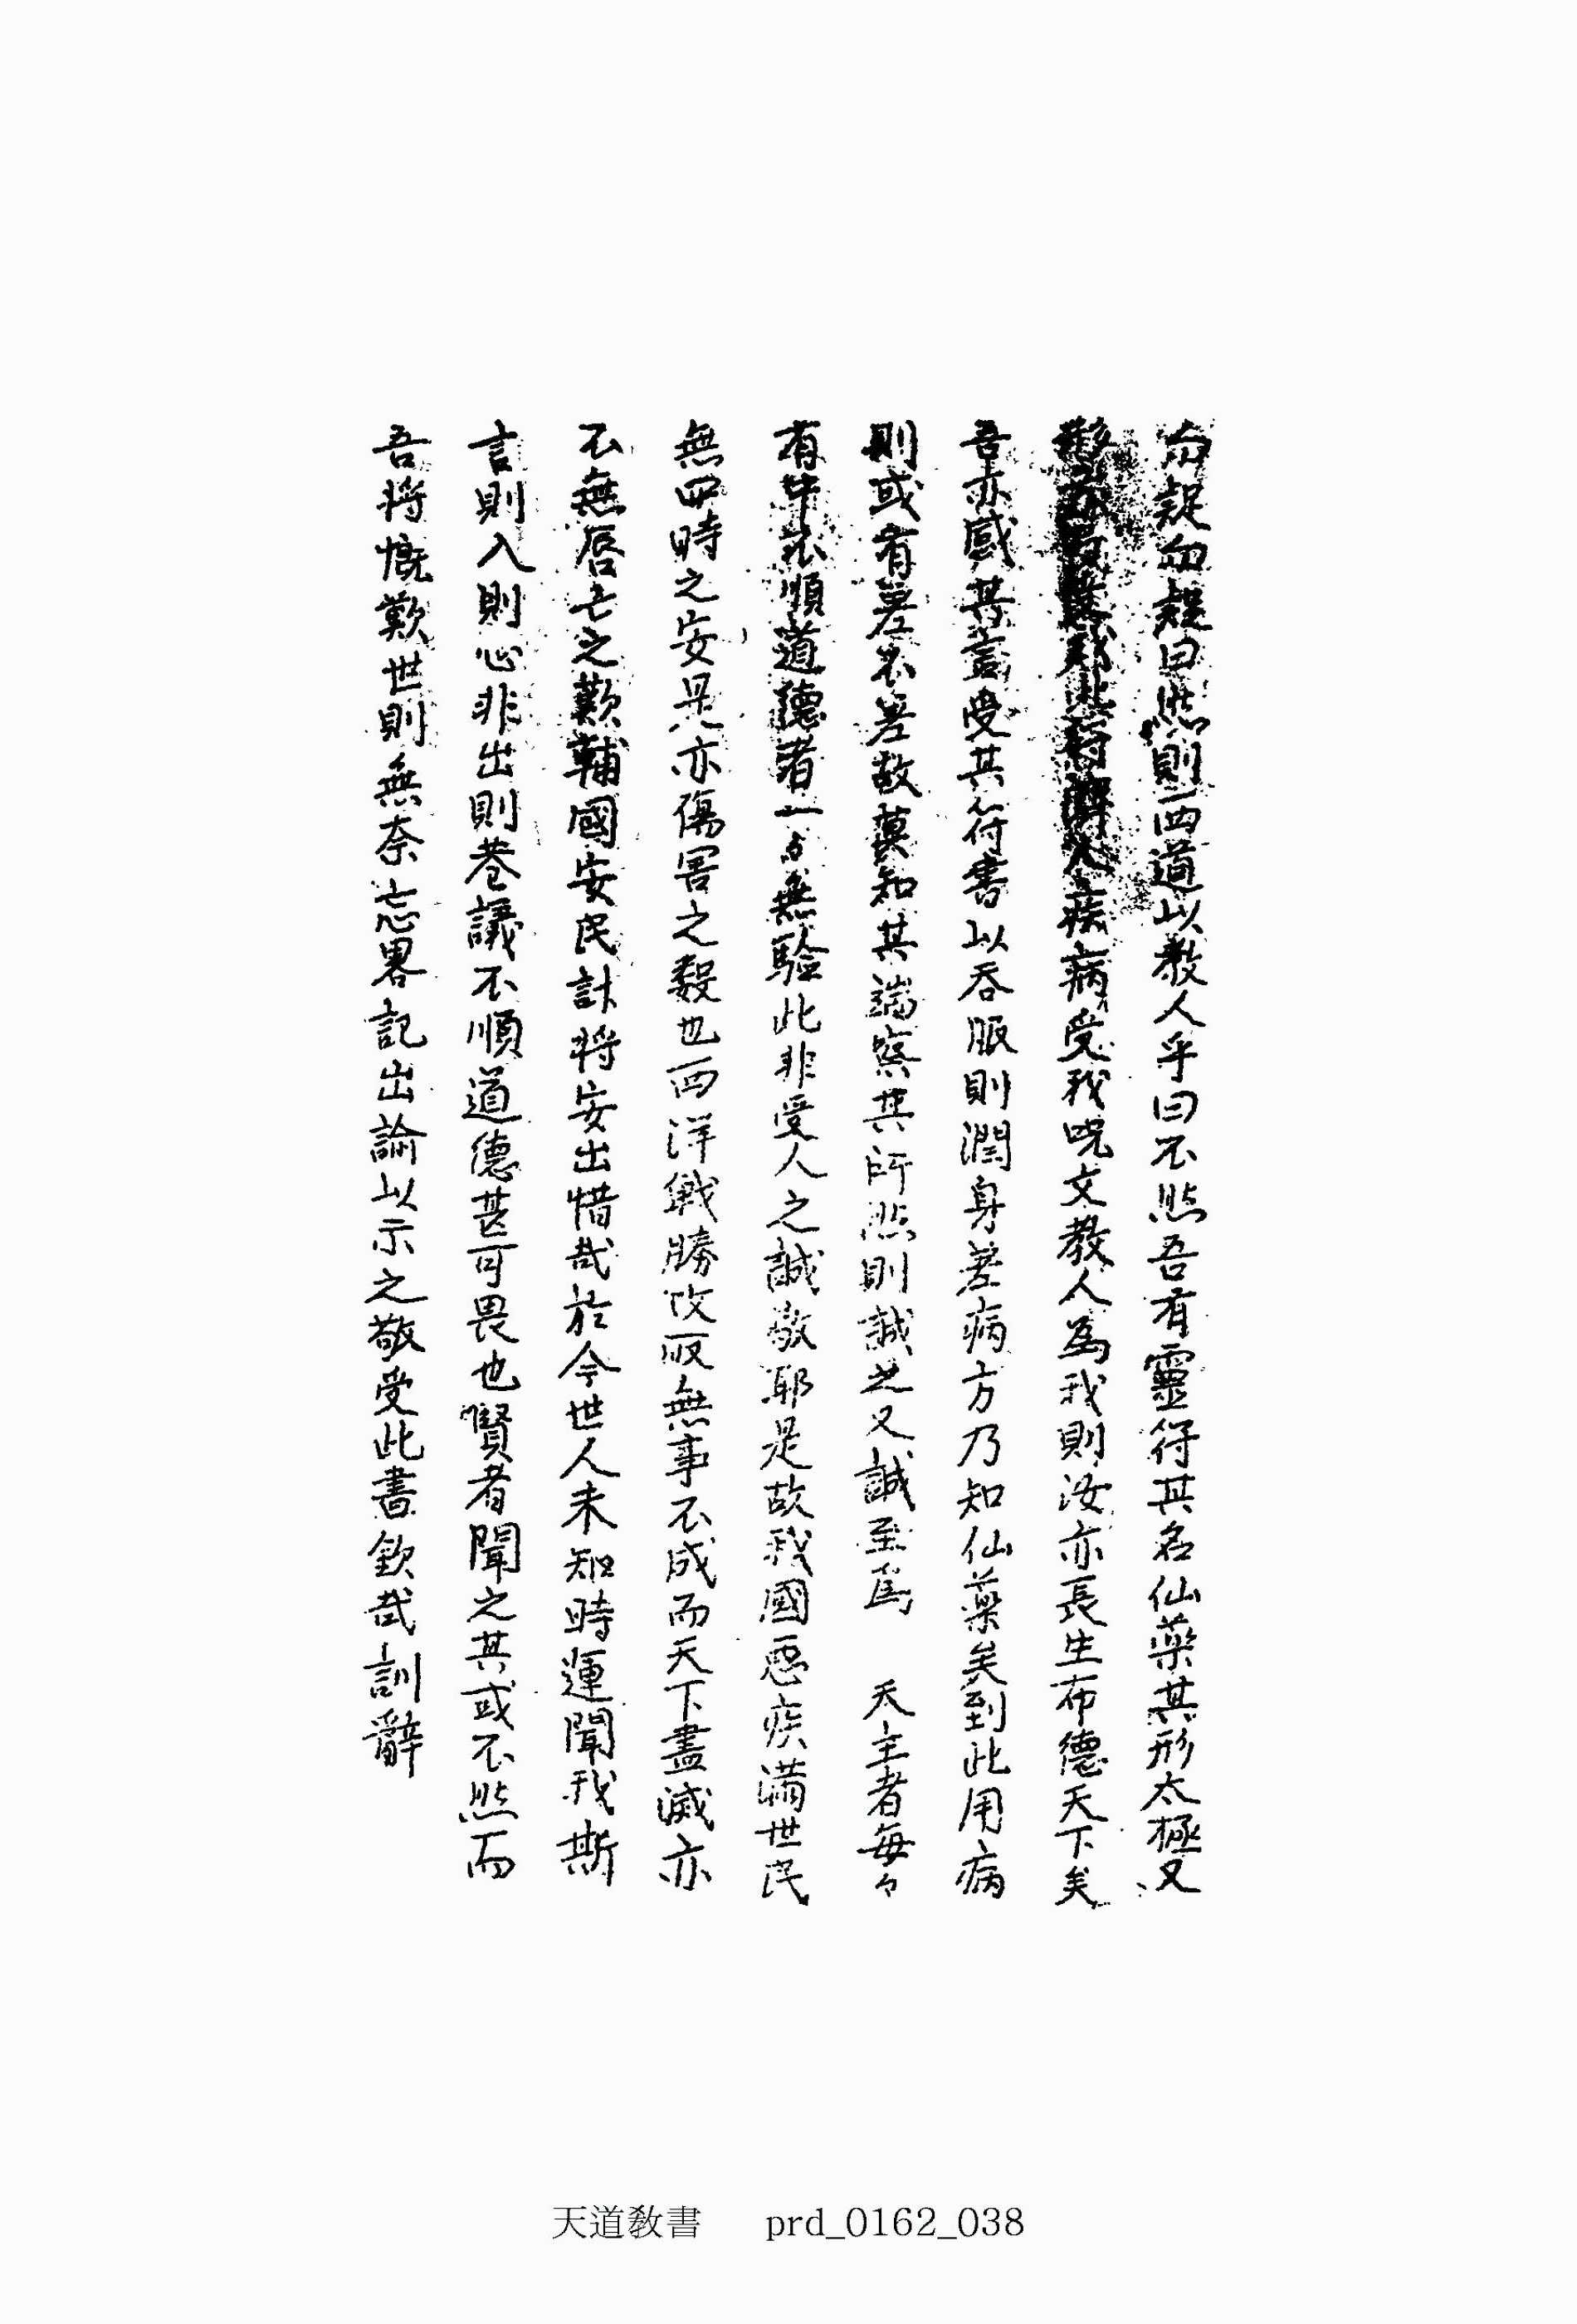 勿疑勿疑曰然則西道以教人乎曰不然吾有靈符其名仙藥其形太極又
形弓弓受我此符濟人疾病受我呪文教人爲我則汝亦長生布德天下矣
吾亦感其言受其符書以吞服則潤身差病方乃知仙藥矣到此用病
則或有差不差故莫知其端察其所然則誠之又誠至爲 天主者每々
有中不順道德者一々無驗此非受人之誠敬耶是故我國惡疾滿世民
無四時之安是亦傷害之數也西洋戰勝攻取無事不成而天下盡滅亦
不無唇亡之歎輔國安民計將安出惜哉於今世人未知時運聞我斯
言則入則心非出則巷議不順道德甚可畏也賢者聞之其或不然而
吾將慨歎世則無奈忘畧記出諭以示之敬受此書欽哉訓辭
天道敎書 prd_0162_038